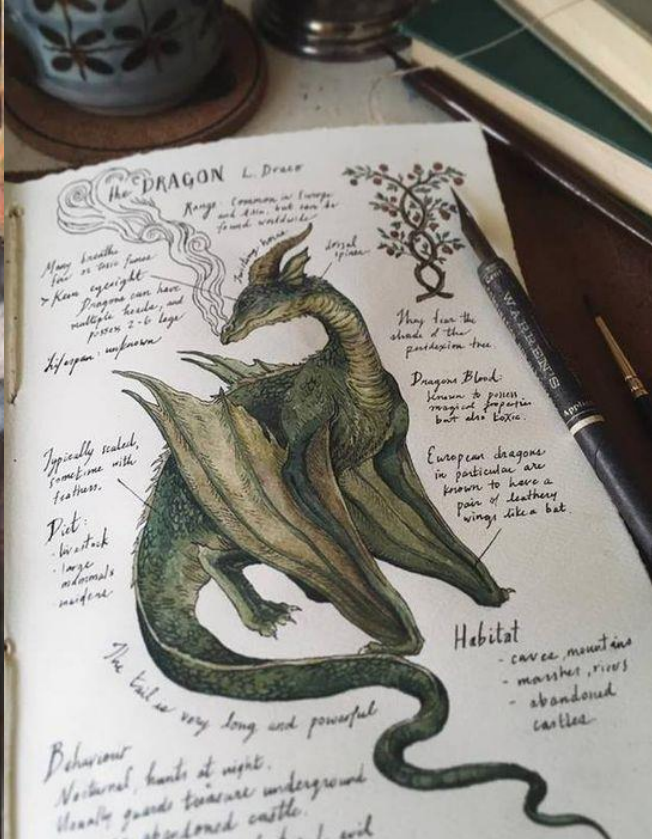 The DRAGON L. Draco
Range: Common in Europe
and Asia, but can be
found worldwide
Many breathe
fire or toxic fumes
Keen eyesight
Dragons can have
multiple heads, and
possess 2-6 legs
Lifespan: unknown
horns
dorsal
spines
They fear the
shade of the
peridexion tree.
Dragons Blood:
known to possess
magical properties
but also toxic.
European dragons
in particular are
known to have a
pair of leathery
wings like a bat.
Typically scaled,
sometime with
feathers.
Diet:
- livestock
- large
mammals
- maidens
Habitat
- caves, mountains
- marshes, rivers
- abandoned
castles
The tail is very long and powerful
Behaviour
Nocturnal, hunts at night.
Usually guards treasure underground
abandoned castle.
evil
WARREN'S